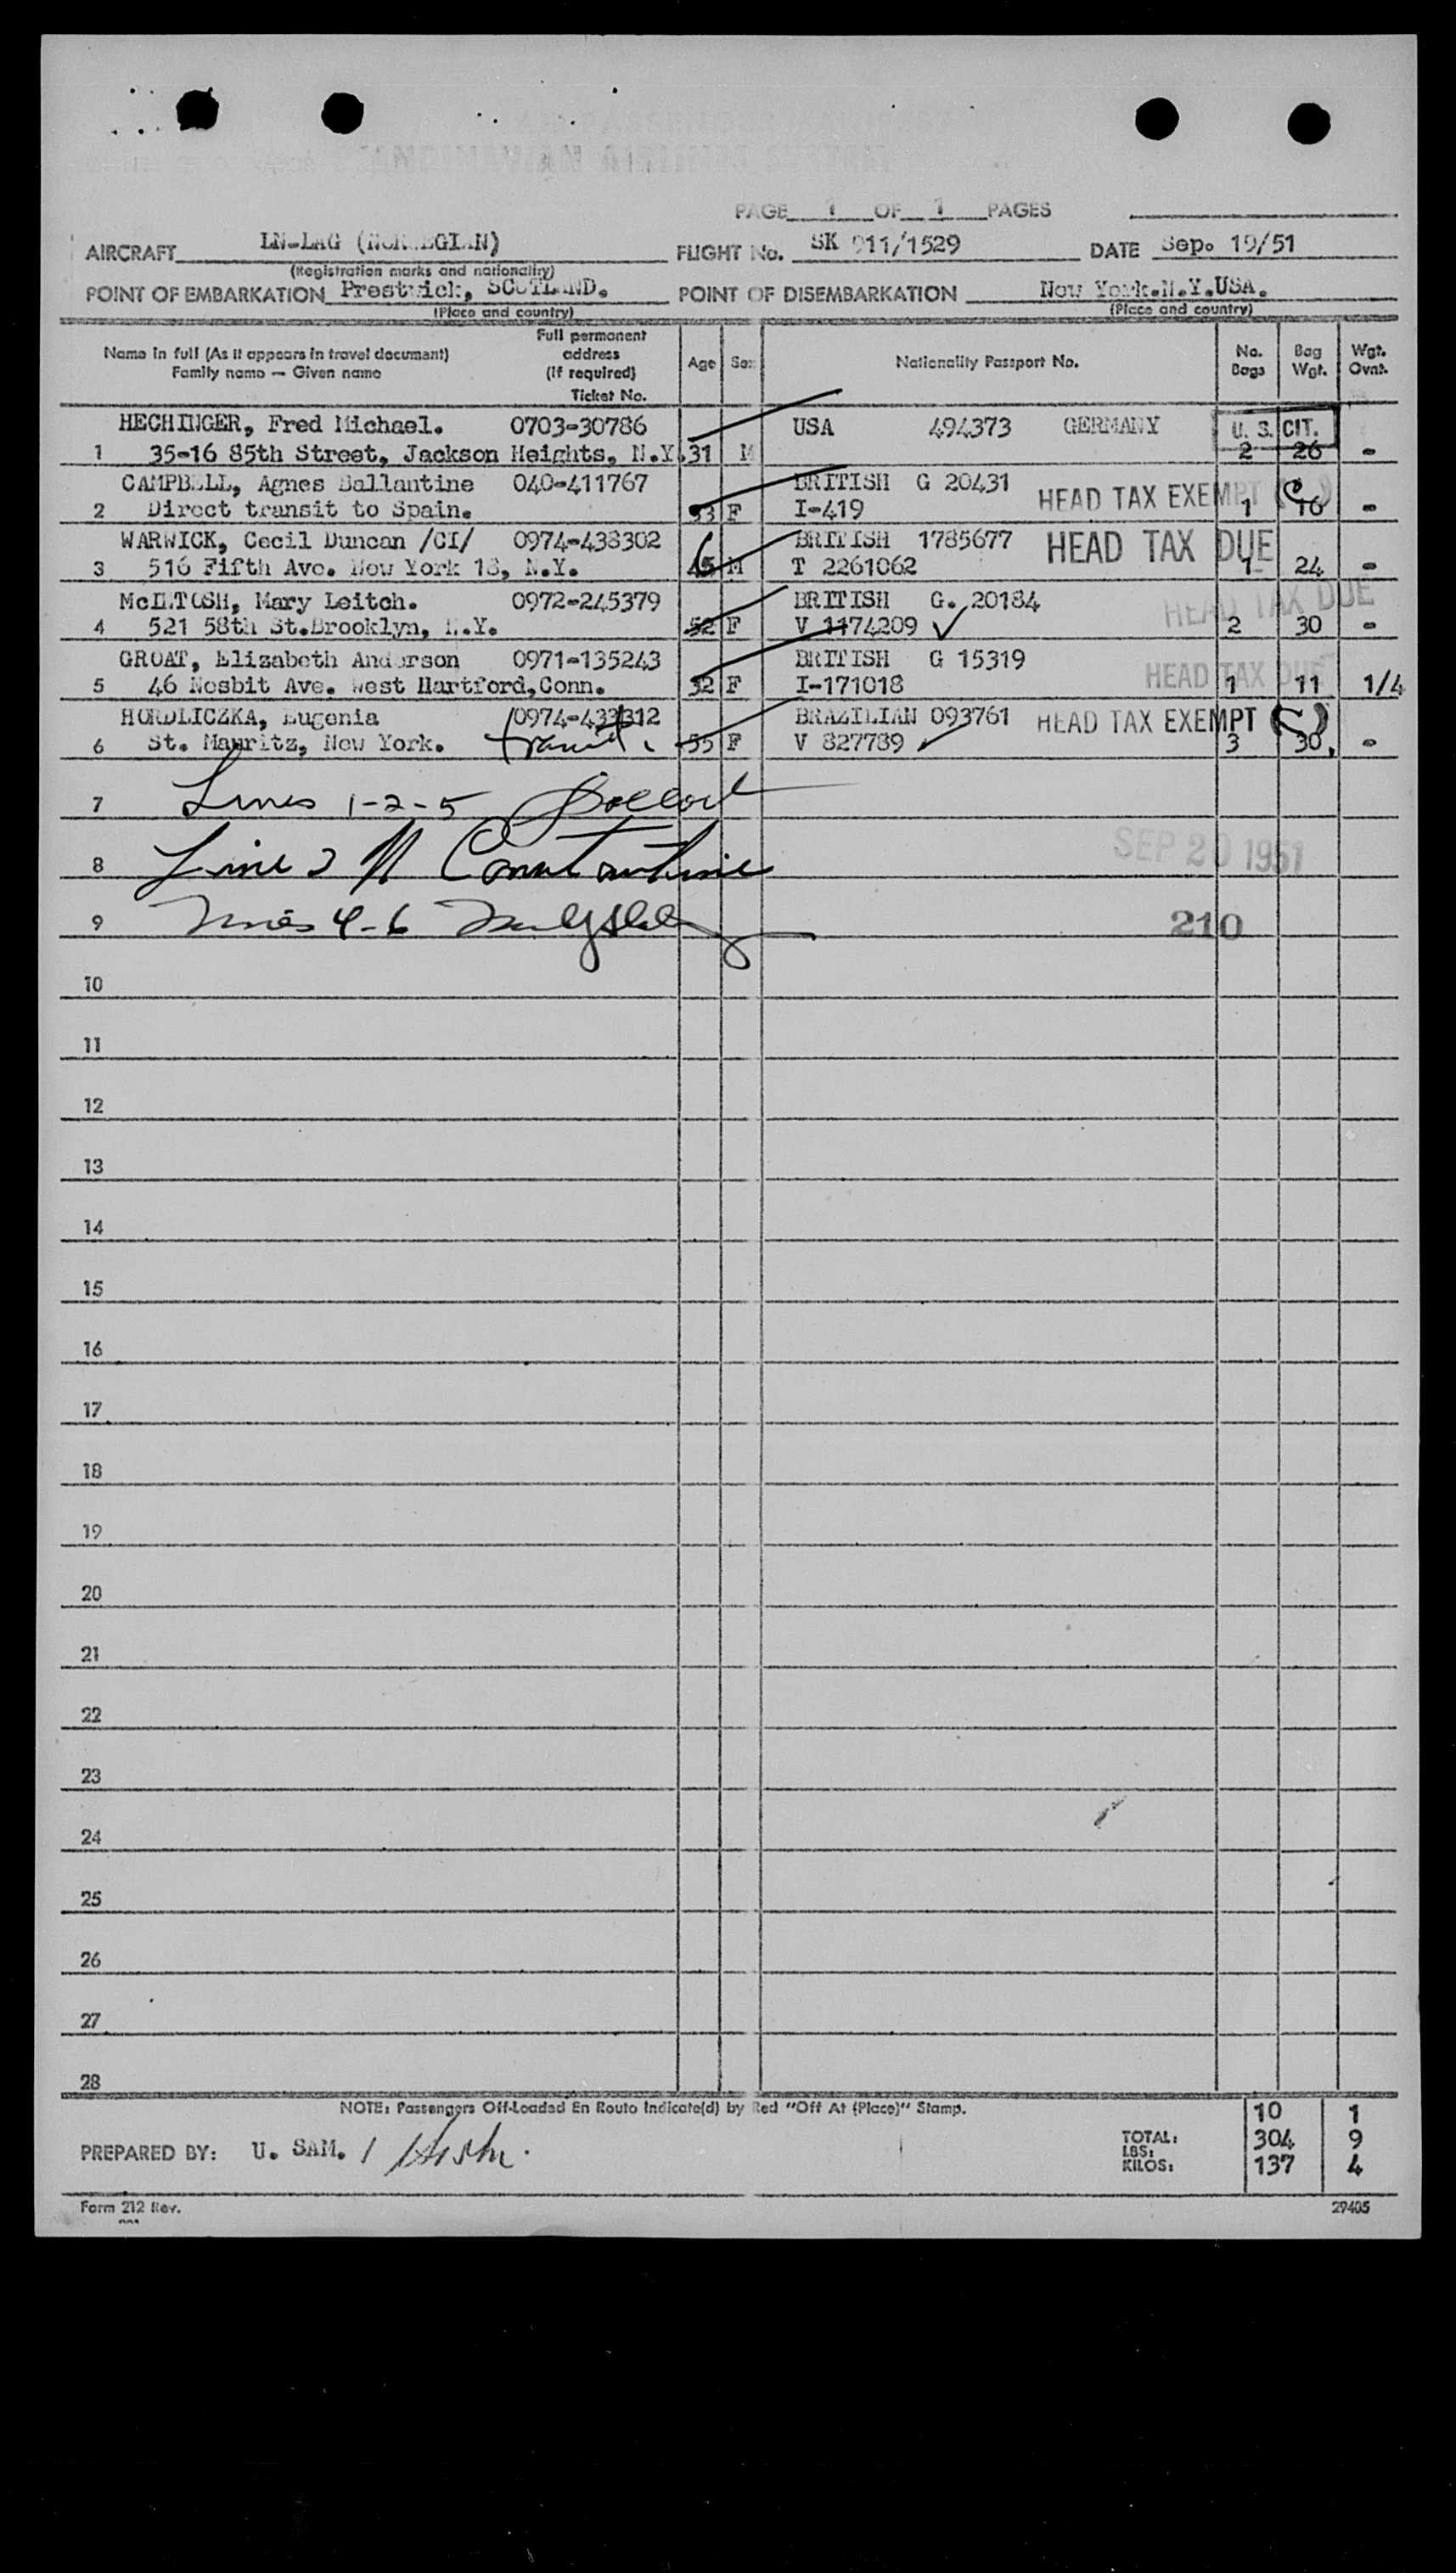 PAGE 1 OF 1 PAGES
AIRCRAFT LN-LAG (NORWEGIAN) FLIGHT No. SK 911/1529 DATE Sep. 19/51
(Registration marks and nationality)
POINT OF EMBARKATION Prestwick, SCOTLAND. POINT OF DISEMBARKATION New York.N.Y.USA.
(Place and country) (Place and country)
Name in full (As it appears in travel document) Family name — Given name Full permanent address (If required) Ticket No. Age Sex Nationality Passport No. No. Bags Bag Wgt. Wgt. Ovnt.
HECHINGER, Fred Michael. 0703-30786 USA 494373 GERMANY U. S. CIT.
1 35-16 85th Street, Jackson Heights, N.Y. 31 M 2 26 -
CAMPBELL, Agnes Ballantine 040-411767 BRITISH G 20431 HEAD TAX EXEMPT (C)
2 Direct transit to Spain. 53 F I-419 1 16 -
WARWICK, Cecil Duncan /CI/ 0974-438302 BRITISH 1785677 HEAD TAX DUE
3 516 Fifth Ave. New York 18, N.Y. 45 M T 2261062 1 24 -
McINTOSH, Mary Leitch. 0972-245379 BRITISH G. 20184 HEAD TAX DUE
4 521 58th St.Brooklyn, N.Y. 52 F V 1174209 2 30 -
GROAT, Elizabeth Anderson 0971-135243 BRITISH G 15319 HEAD TAX DUE
5 46 Nesbit Ave. West Hartford,Conn. 32 F I-171018 1 11 1/4
HORDLICZKA, Eugenia 0974-433312 BRAZILIAN 093761 HEAD TAX EXEMPT (C)
6 St. Mauritz, New York. transit. 55 F V 827789 3 30 -
7 Lines 1-2-5
8 Line 3 Constantine SEP 20 1951
9 Lines 4-6 210
10
11
12
13
14
15
16
17
18
19
20
21
22
23
24
25
26
27
28
NOTE: Passengers Off-Loaded En Route Indicate(d) by Red "Off At (Place)" Stamp.
10 1
TOTAL: 304 9
PREPARED BY: U. SAM. /
LBS:
KILOS: 137 4
Form 212 Rev. 29405